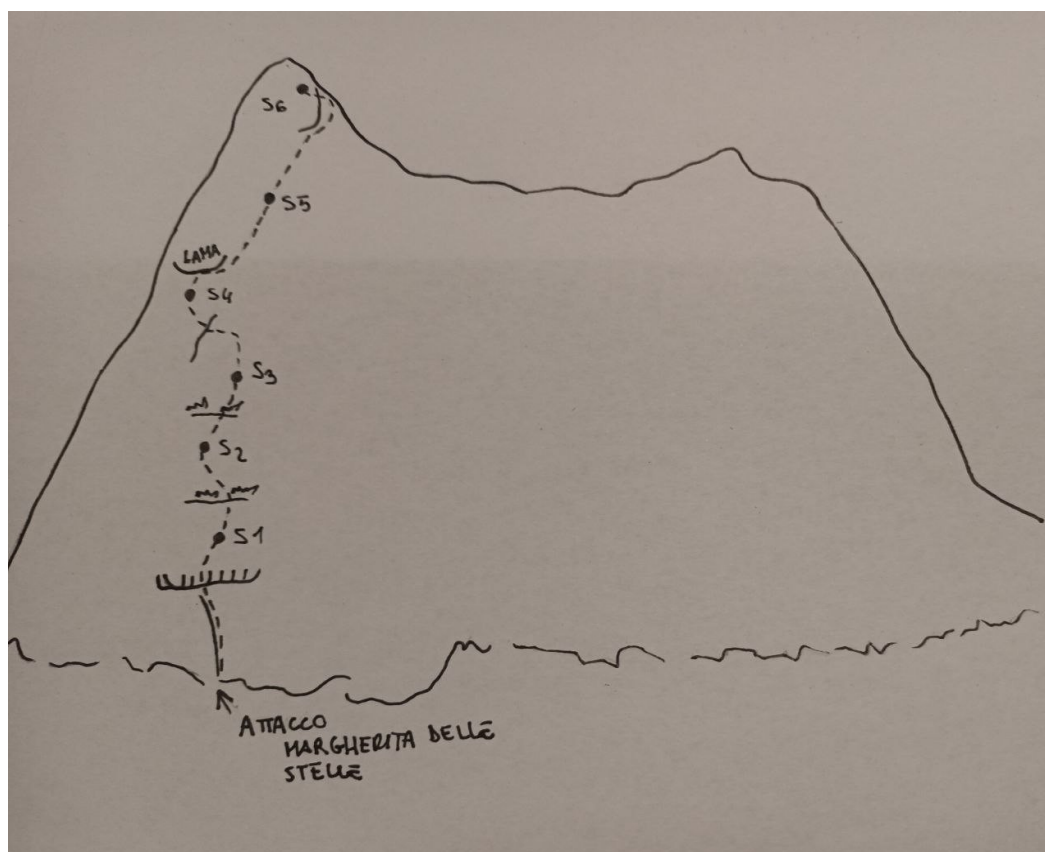 S6
S5
LAMA
S4
S3
S2
S1
ATTACCO
MARGHERITA DELLE
STELLE